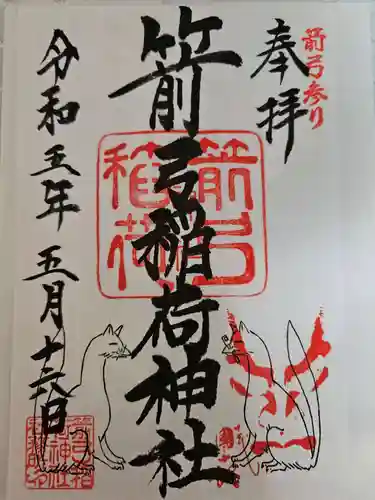 箭弓参り
奉拝
箭弓稲荷神社
箭弓
稲荷
令和五年五月十六日